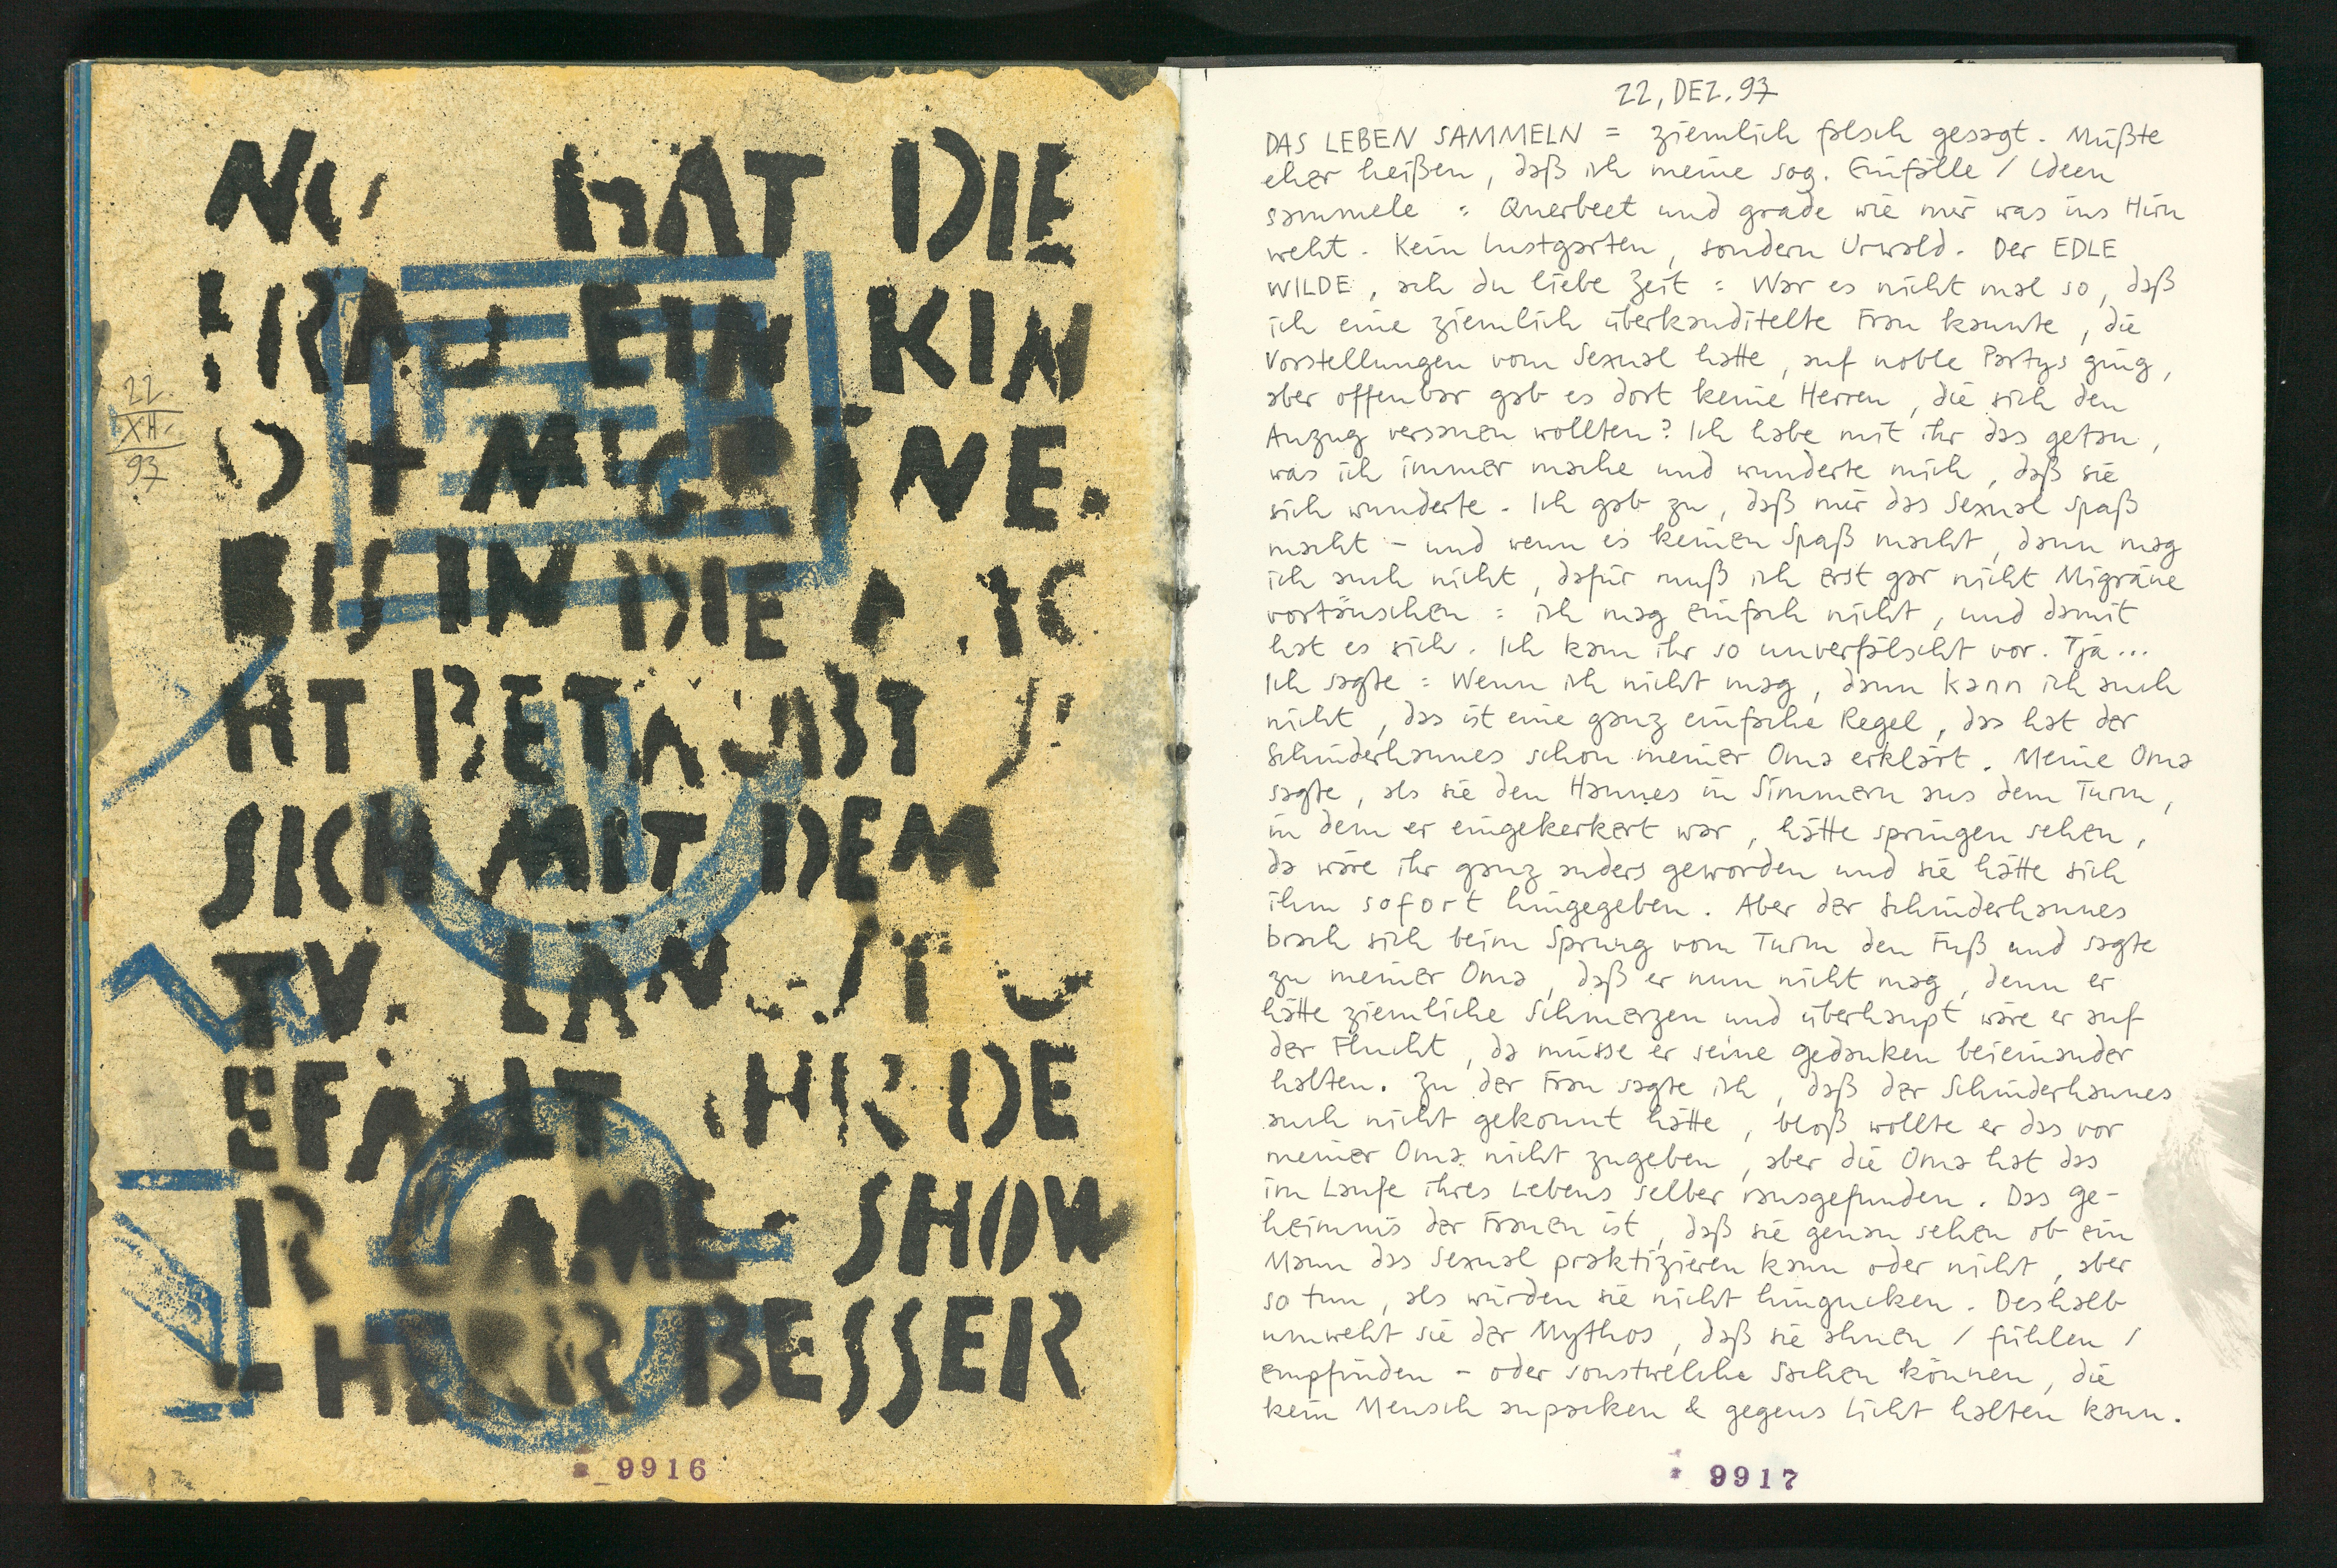 HAT DIE
FRAU EIN KIN
D + MIGRÄNE.
BIS IN DIE
HT BETÄUBT S
SICH MIT DEM
TV. LÄNGST G
EFÄLLT IHR DE
R GAME SHOW
HERR BESSER
22.
XII.
97
9916
22, DEZ. 97
DAS LEBEN SAMMELN = ziemlich falsch gesagt. Müßte
eher heißen, daß ich meine sog. Einfälle / Ideen
sammele : Querbeet und grade wie mir was ins Hirn
weht. Kein Lustgarten, sondern Urwald. Der EDLE
WILDE, ach du liebe Zeit : War es nicht mal so, daß
ich eine ziemlich überkanditelte Frau kannte, die
Vorstellungen vom Sexual hatte, auf noble Partys ging,
aber offenbar gab es dort keine Herren, die sich den
Anzug versauen wollten? Ich habe mit ihr das getan,
was ich immer mache und wunderte mich, daß sie
sich wunderte. Ich gab zu, daß mir das Sexual Spaß
macht - und wenn es keinen Spaß macht, dann mag
ich auch nicht, dafür muß ich erst gar nicht Migräne
vortäuschen : ich mag einfach nicht, und damit
hat es sich. Ich kam ihr so unverfälscht vor. Tja...
Ich sagte : Wenn ich nicht mag, dann kann ich auch
nicht, das ist eine ganz einfache Regel, das hat der
Schinderhannes schon meiner Oma erklärt. Meine Oma
sagte, als sie den Hannes in Simmern aus dem Turm,
in dem er eingekerkert war, hätte springen sehen,
da wäre ihr ganz anders geworden und sie hätte sich
ihm sofort hingegeben. Aber der Schinderhannes
brach sich beim Sprung vom Turm den Fuß und sagte
zu meiner Oma, daß er nun nicht mag, denn er
hätte ziemliche Schmerzen und überhaupt wäre er auf
der Flucht, da müsse er seine Gedanken beieinander
halten. Zu der Frau sagte ich, daß der Schinderhannes
auch nicht gekonnt hätte, bloß wollte er das vor
meiner Oma nicht zugeben, aber die Oma hat das
im Laufe ihres Lebens selber rausgefunden. Das Ge-
heimnis der Frauen ist, daß sie genau sehen ob ein
Mann das Sexual praktizieren kann oder nicht, aber
so tun, als würden sie nicht hingucken. Deshalb
umweht sie der Mythos, daß sie ahnen / fühlen /
empfinden - oder sonstwelche Sachen können, die
kein Mensch anpacken & gegens Licht halten kann.
9917